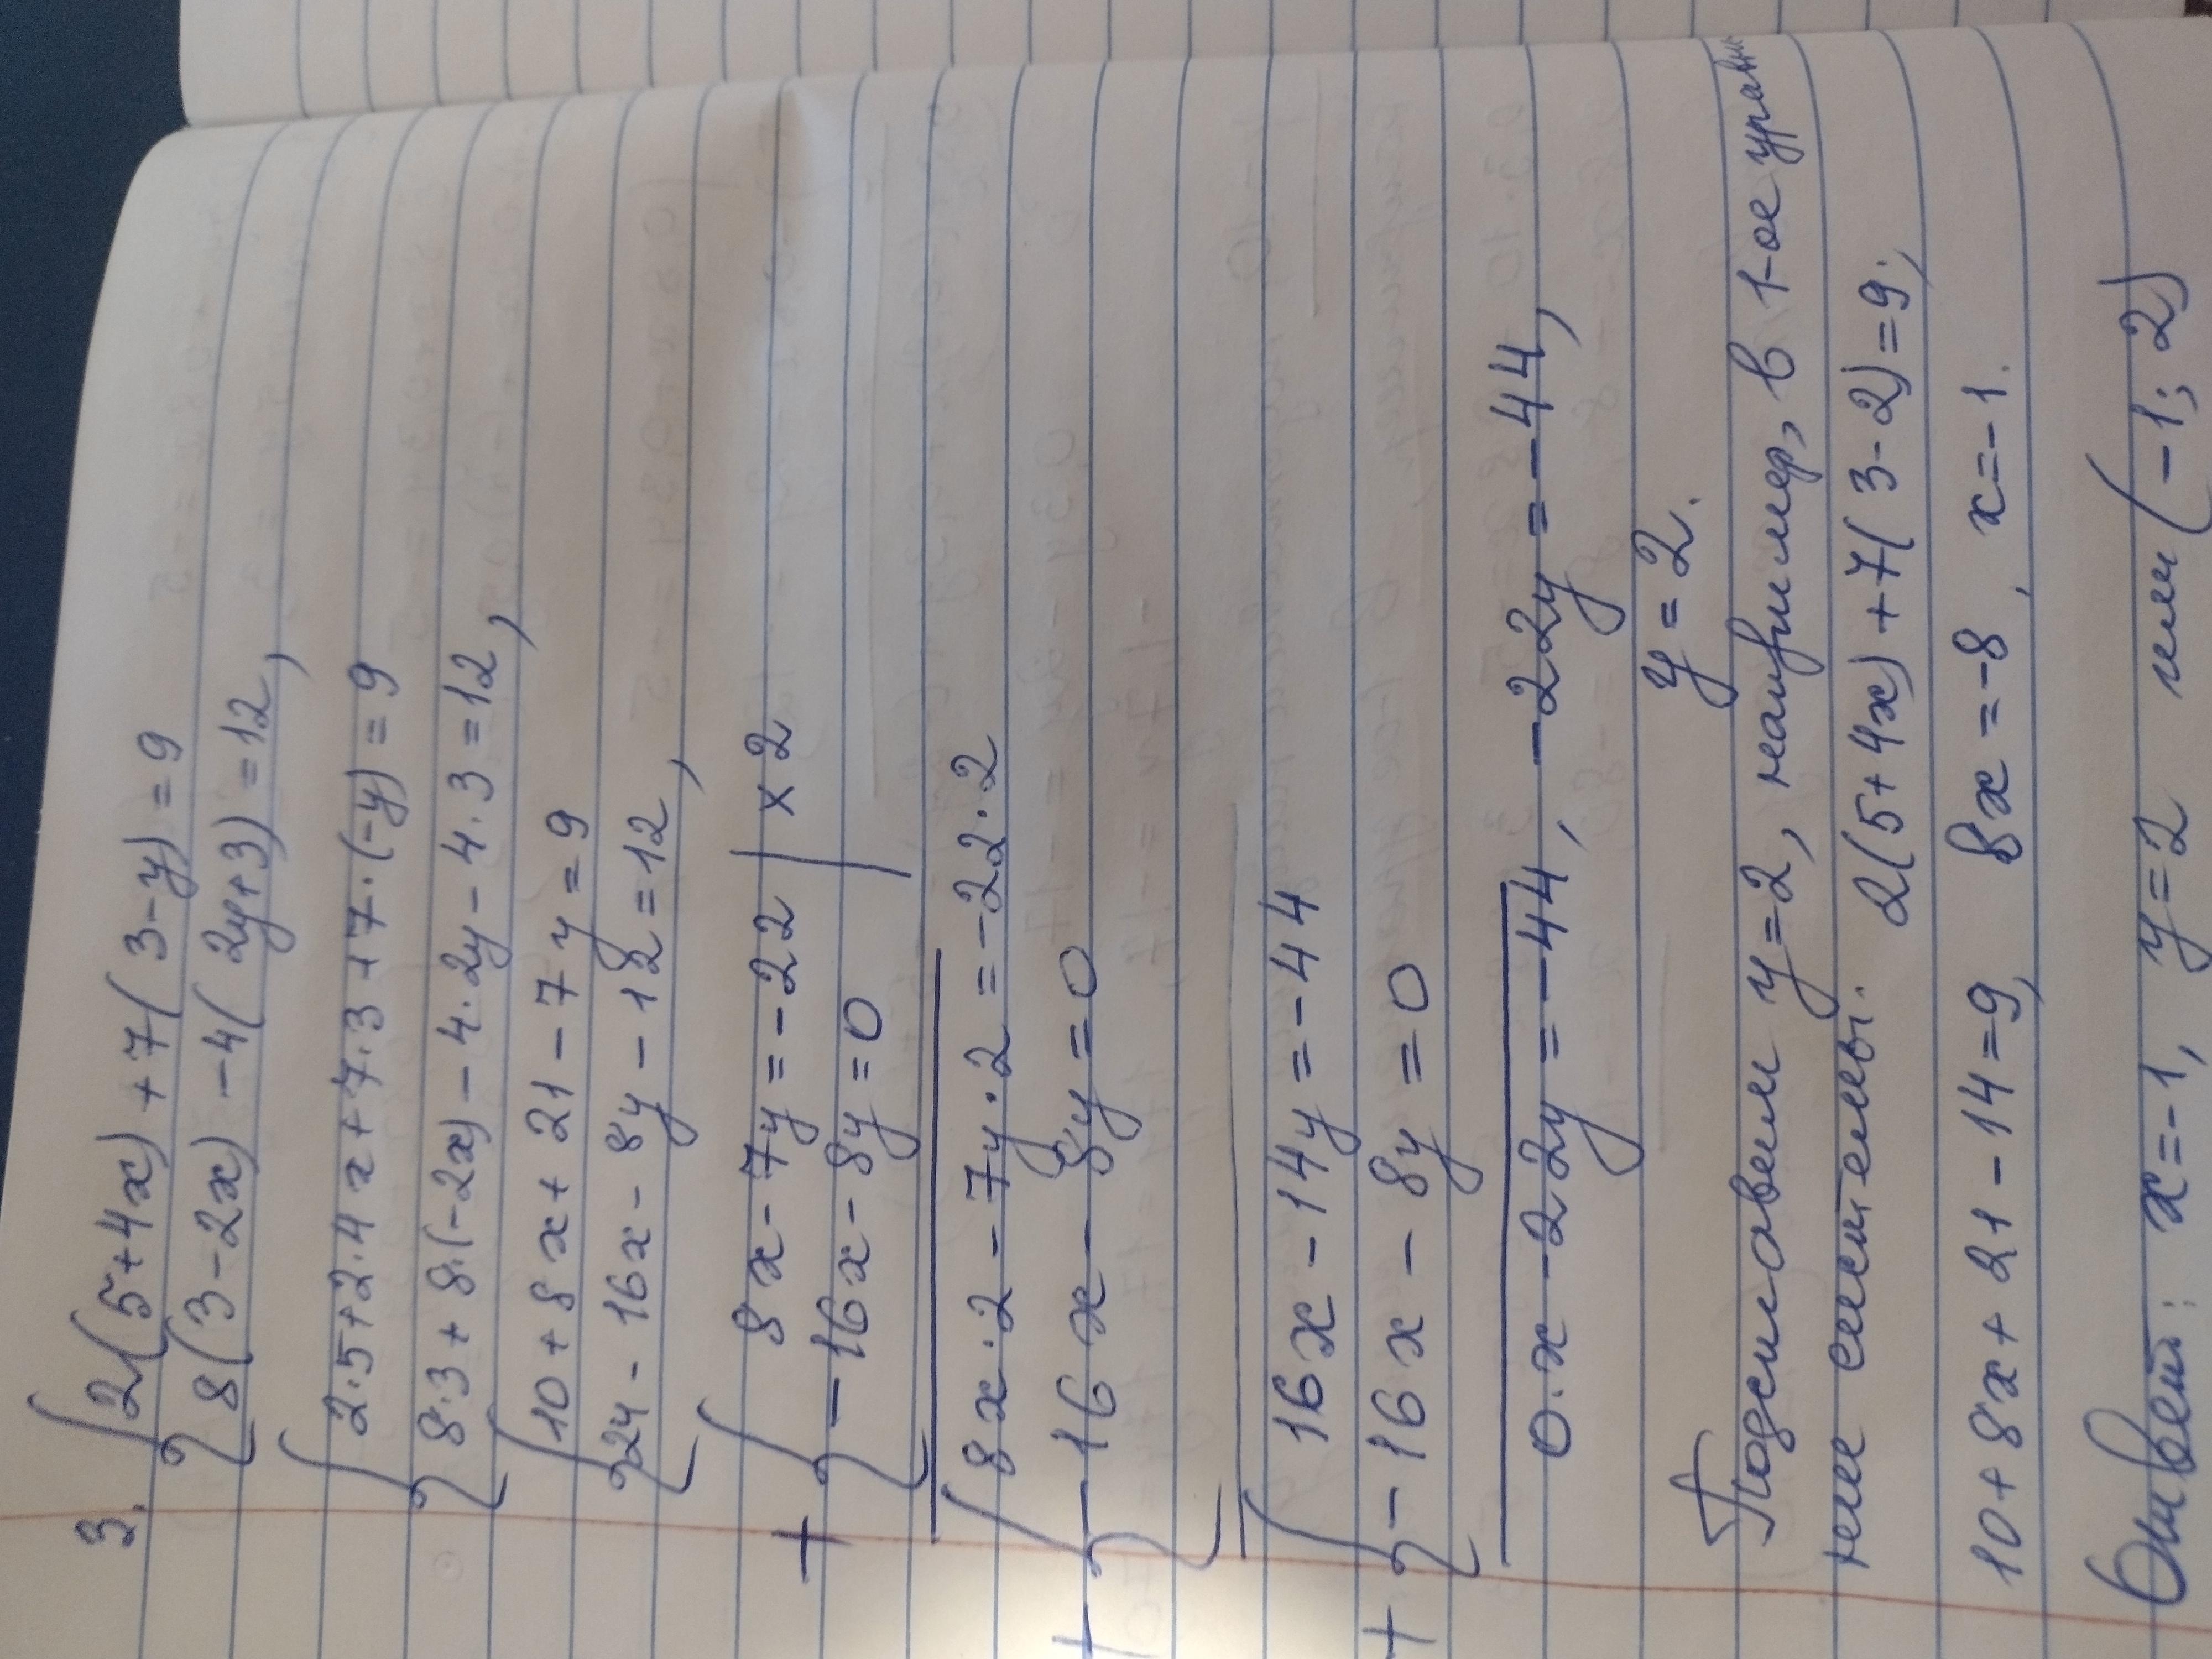 3. { 2(5+4x)+7(3-y)=9
8(3-2x)-4(2y+3)=12,
{ 2·5+2·4x+7·3+7·(-y)=9
8·3+8·(-2x)-4·2y-4·3=12,
{ 10+8x+21-7y=9
24-16x-8y-12=12,
+ { 8x-7y=-22 | ×2
-16x-8y=0
+ { 8x·2-7y·2=-22·2
-16x-8y=0
+ { 16x-14y=-44
-16x-8y=0
0·x-22y=-44, -22y=-44,
y=2.
Подставем y=2, например, в 1-ое уравне
ние системы. 2(5+4x)+7(3-2)=9;
10+8x+21-14=9, 8x=-8, x=-1.
Ответ: x=-1, y=2 или (-1; 2)